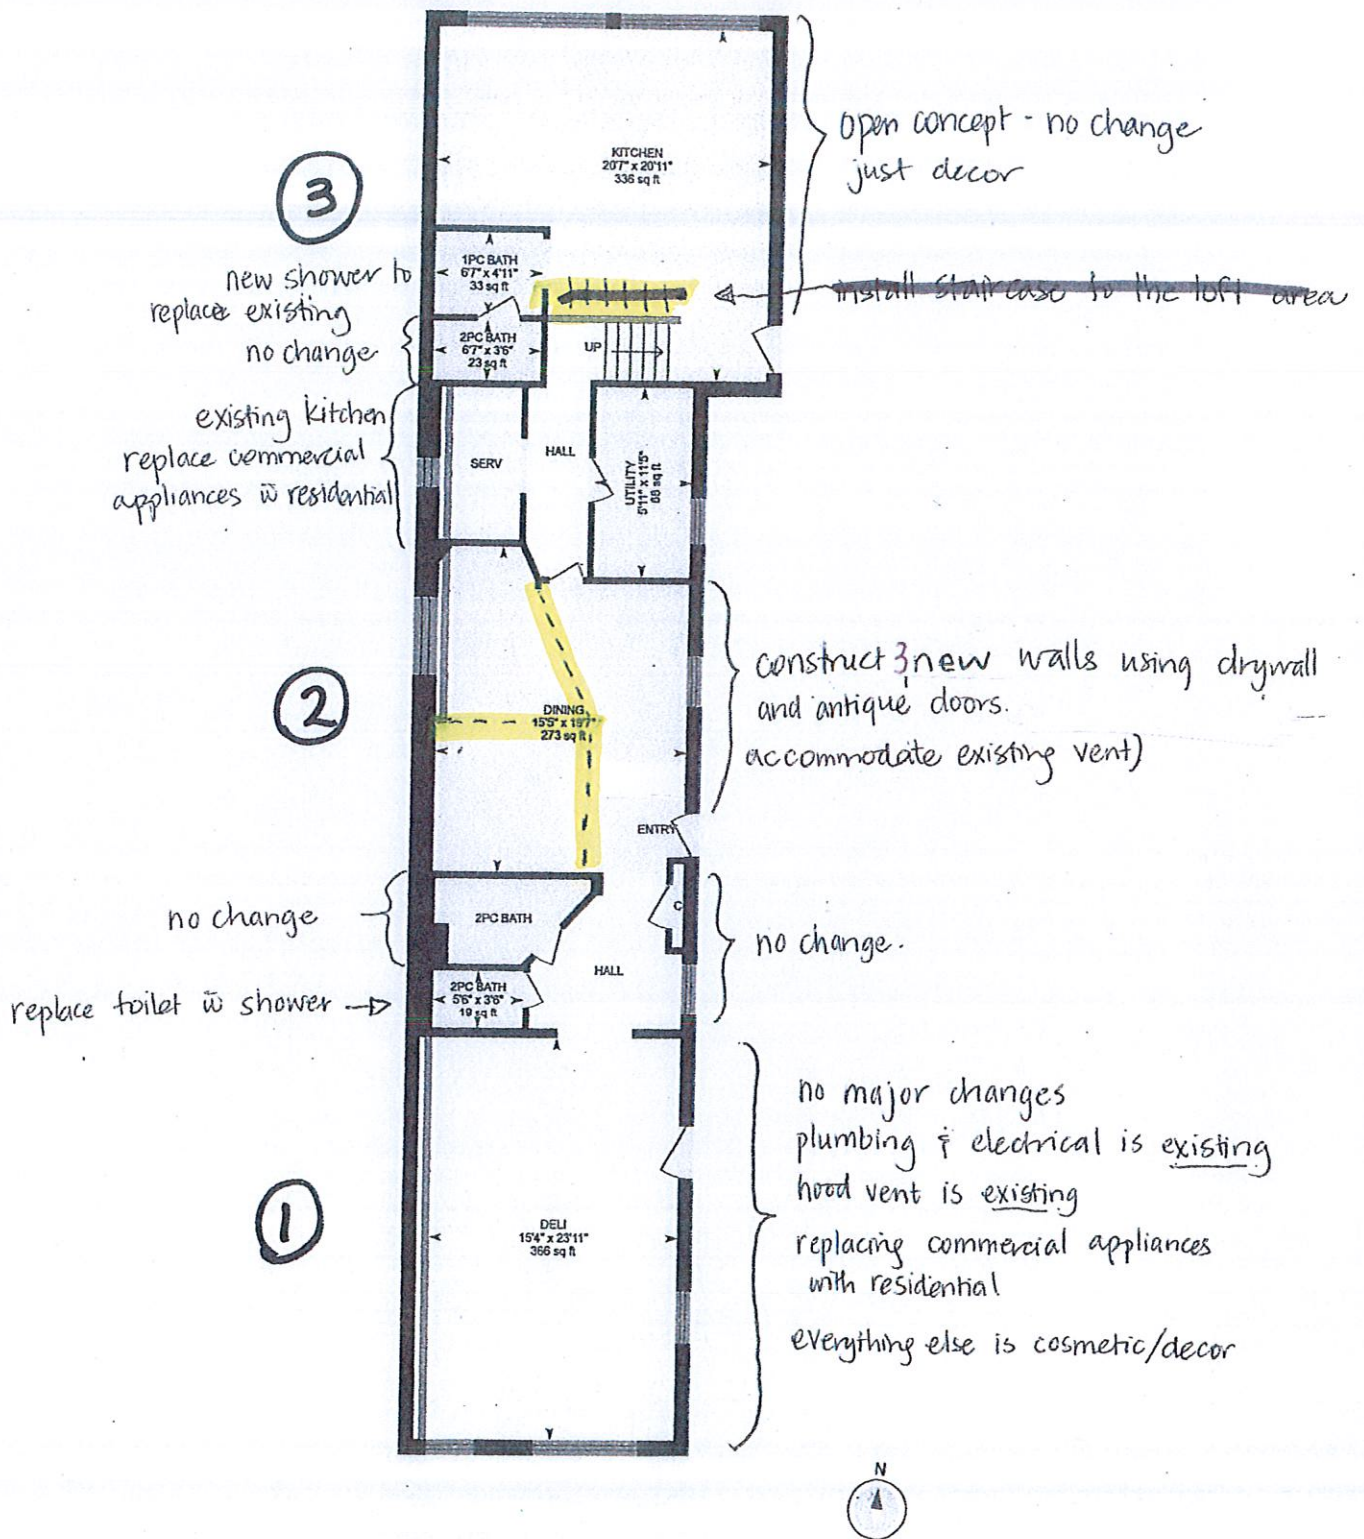 KITCHEN
20'7" x 20'11"
336 sq ft
open concept - no change
just decor
3
1PC BATH
6'7" x 4'11"
33 sq ft
new shower to
replace existing
no change
install staircase to the loft area
2PC BATH
6'7" x 3'6"
23 sq ft
UP
existing kitchen
replace commercial
appliances w̄ residential
SERV
HALL
UTILITY
5'11" x 11'5"
68 sq ft
2
DINING
15'5" x 19'7"
273 sq ft
construct 3 new walls using drywall
and antique doors.
accommodate existing vent)
ENTRY
no change
2PC BATH
C
HALL
no change.
replace toilet w̄ shower
2PC BATH
5'6" x 3'6"
19 sq ft
1
DELI
15'4" x 23'11"
366 sq ft
no major changes
plumbing & electrical is existing
hood vent is existing
replacing commercial appliances
with residential
everything else is cosmetic/decor
N